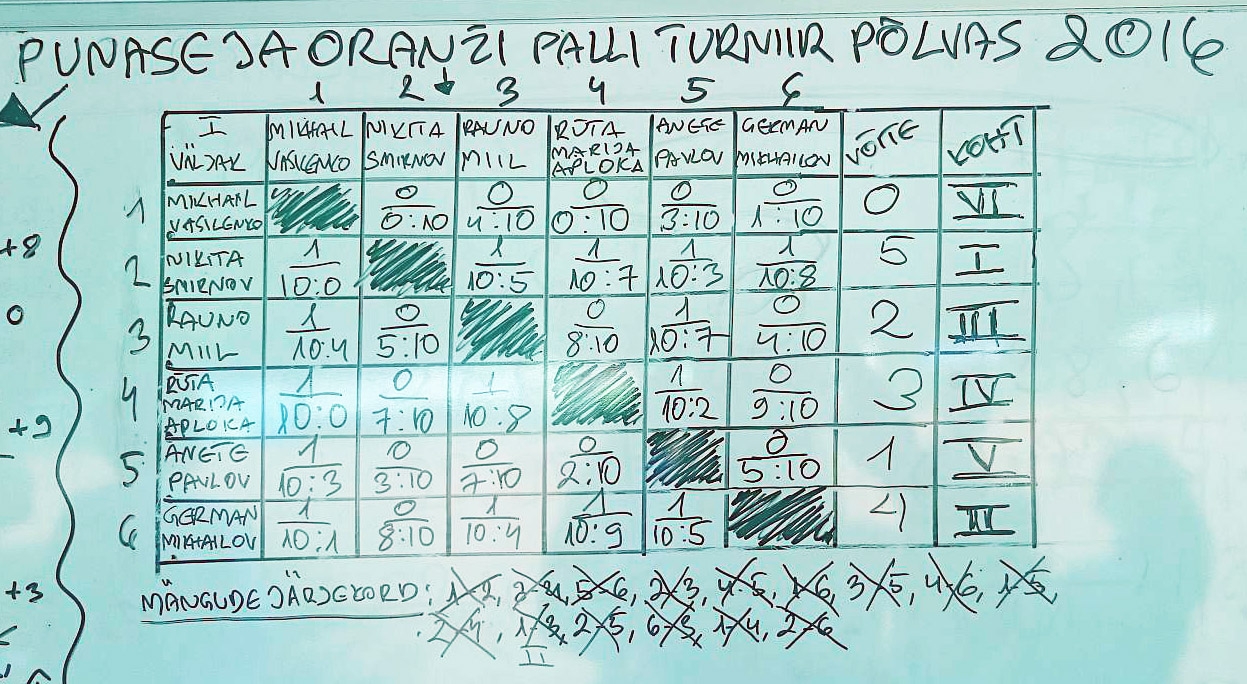 PUNASE JA ORANŽI PALLI TURNIIR PÕLVAS 2016
1 2 3 4 5 6
I VÄLJAK MIKHAIL VASILENKO NIKITA SMIRNOV RAUNO MIIL RŪTA MARIJA APLOKA ANETE PAVLOV GERMAN MIKHAILOV VÕITE KOHT
1 MIKHAIL VASILENKO 0 0:10 0 4:10 0 0:10 0 3:10 0 1:10 0 VI
2 NIKITA SMIRNOV 1 10:0 1 10:5 1 10:7 1 10:3 1 10:8 5 I
3 RAUNO MIIL 1 10:4 0 5:10 0 8:10 1 10:7 0 4:10 2 III
4 RŪTA MARIJA APLOKA 1 10:0 0 7:10 1 10:8 1 10:2 0 9:10 3 IV
5 ANETE PAVLOV 1 10:3 0 3:10 0 7:10 0 2:10 0 5:10 1 V
6 GERMAN MIKHAILOV 1 10:1 0 8:10 1 10:4 1 10:9 1 10:5 4 II
MÄNGUDE JÄRJEKORD: 1-2, 5-6, 2-3, 4-5, 1-6, 3-5, 4-6, 1-5,
2-4, 1-3, 2-5, 6-3, 1-4, 2-6
II
+8
0
+9
+3